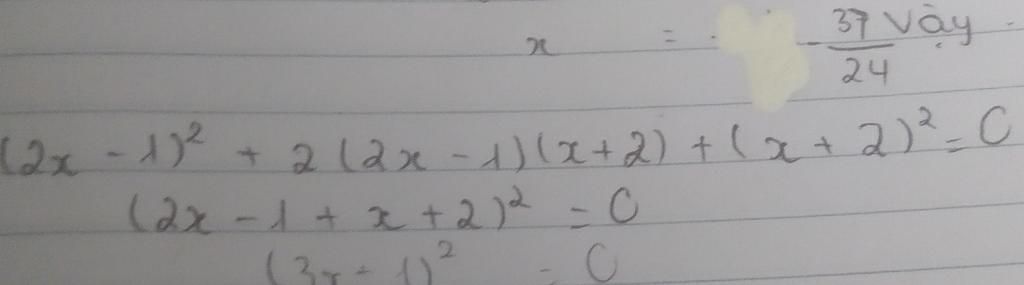 x = - 37/24 Vậy
(2x - 1)² + 2(2x - 1)(x + 2) + (x + 2)² = 0
(2x - 1 + x + 2)² = 0
(3x + 1)² = 0